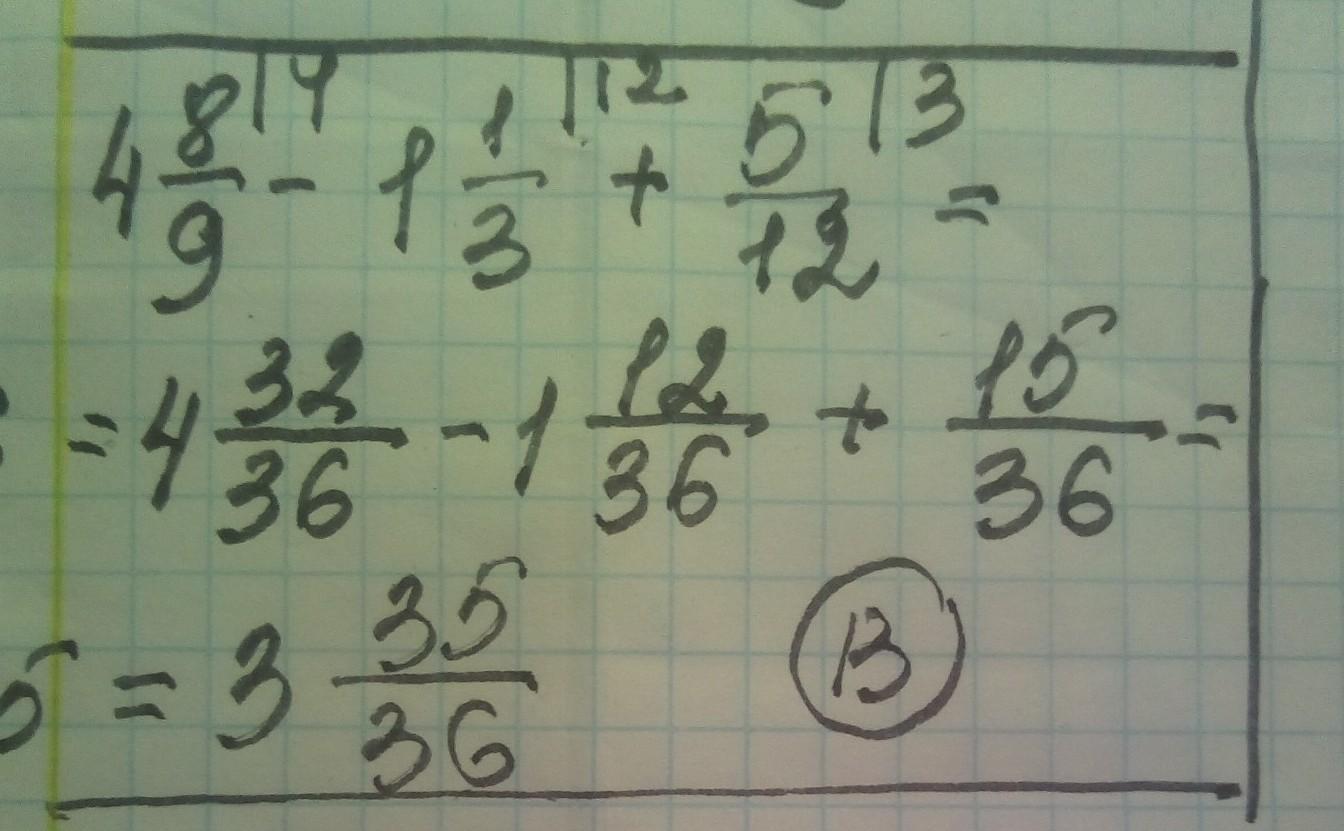 4 8/9 |4 - 1 1/3 |12 + 5/12 |3 =
= 4 32/36 - 1 12/36 + 15/36 =
5 = 3 35/36 B